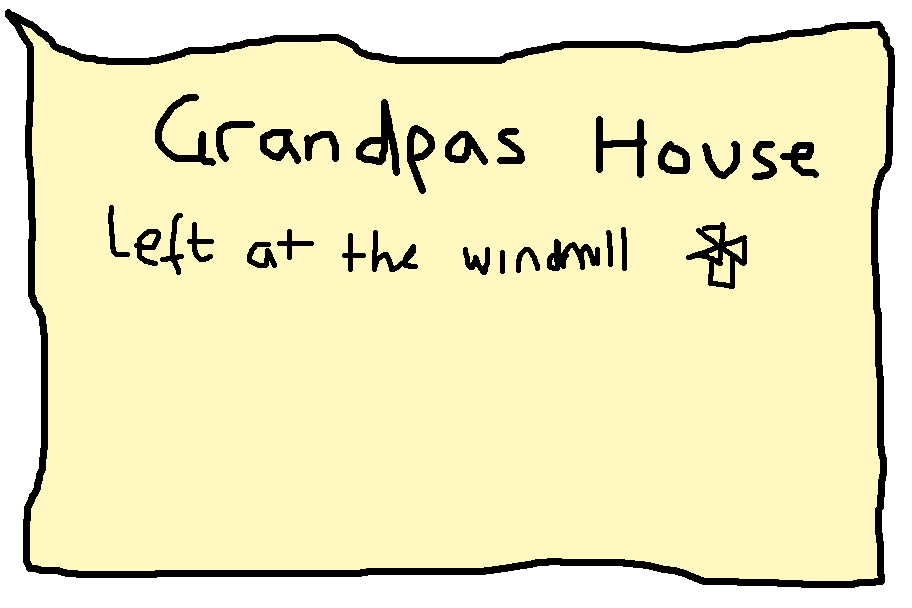 Grandpas House
Left at the windmill